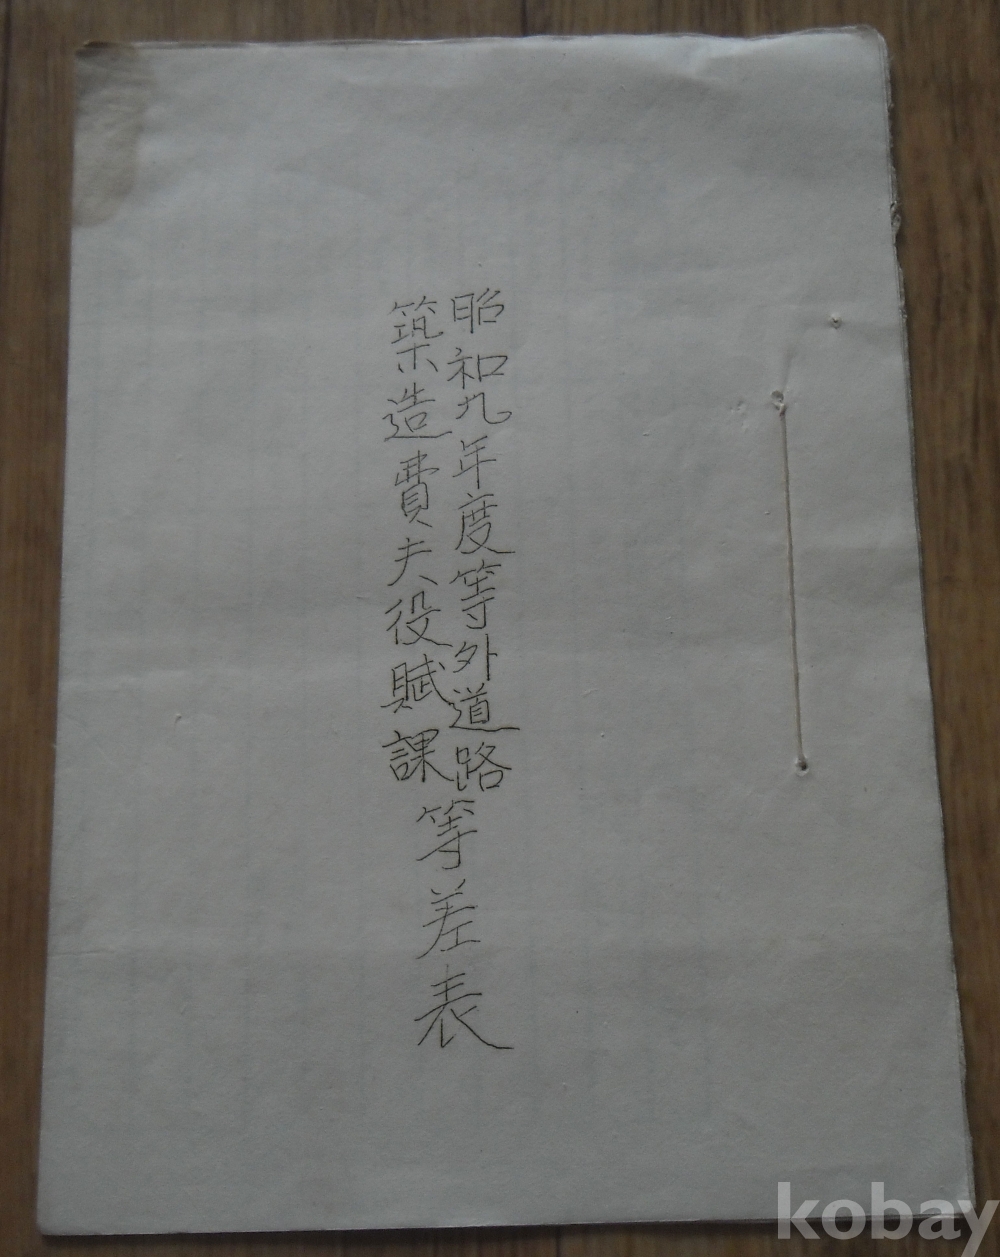 昭和九年度等外道路
築造費夫役賦課
等差表
kobay